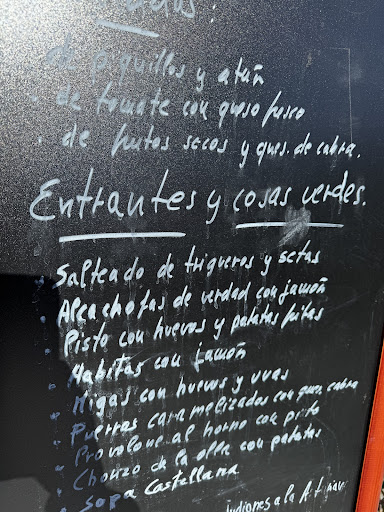 de piquillos y atún
de tomate con queso fresco
de frutos secos y ques. de cabra.
Entrantes y cosas verdes.
Salteado de trigueros y setas
Alcachofas de verdad con jamón
Pisto con huevos y patatas fritas
Habitas con jamón
Migas con huevos y uvas
Puerros caramelizados con queso cabra
Provolone al horno con pisto
Chorizo de la olla con patatas
Sopa Castellana
Judiones a la